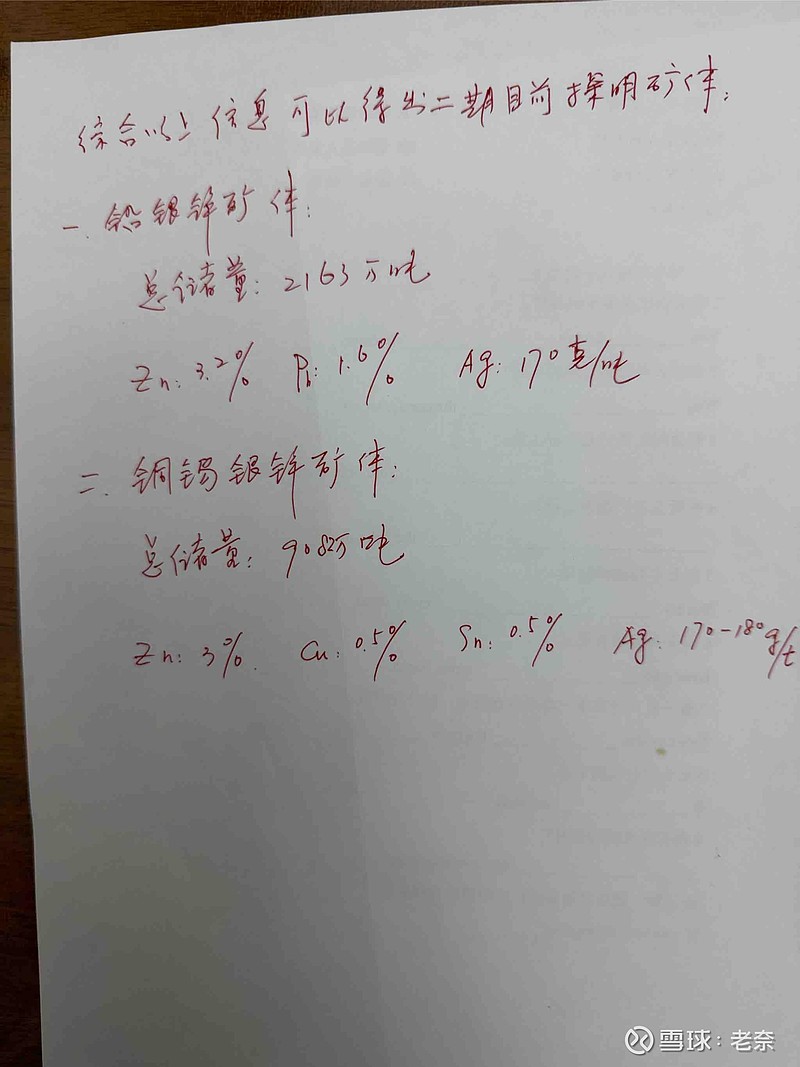 综合以上信息可以得出二期目前探明矿体:
一. 铅银锌矿体:
总储量: 2163万吨
Zn: 3.2% Pb: 1.6% Ag: 170克/吨
二. 铜锡银锌矿体:
总储量: 908万吨
Zn: 3%. Cu: 0.5% Sn: 0.5% Ag: 170-180g/t
雪球: 老奈